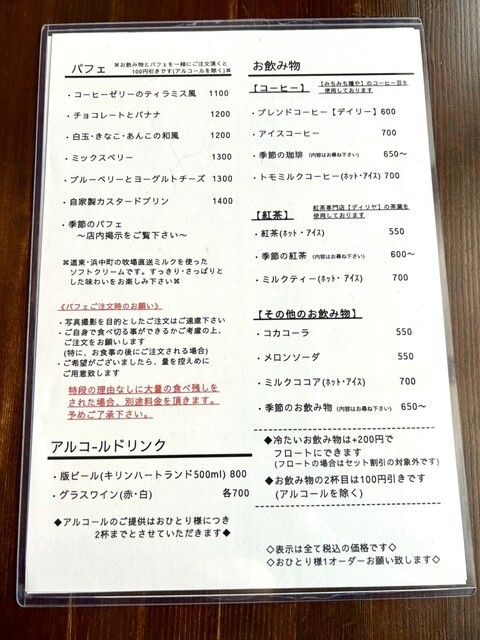 パフェ
⌘お飲み物とパフェを一緒にご注文頂くと
100円引きです(アルコールを除く)⌘
・コーヒーゼリーのティラミス風 1100
・チョコレートとバナナ 1200
・白玉・きなこ・あんこの和風 1200
・ミックスベリー 1300
・ブルーベリーとヨーグルトチーズ 1300
・自家製カスタードプリン 1400
・季節のパフェ
～店内掲示をご覧下さい～
⌘道東・浜中町の牧場直送ミルクを使った
ソフトクリームです。すっきり・さっぱりと
した味わいをお楽しみ下さい⌘
《パフェご注文時のお願い》
・写真撮影を目的としたご注文はご遠慮下さい
・ご自身で食べ切る事ができるかご考慮の上、
ご注文をお願いします
(特に、お食事の後にご注文される場合)
・ご希望がございましたら、量を控えめに
ご用意致します
特段の理由なしに大量の食べ残しを
された場合、別途料金を頂きます。
予めご了承下さい。
アルコールドリンク
・版ビール(キリンハートランド500ml) 800
・グラスワイン(赤・白) 各700
◆アルコールのご提供はおひとり様につき
2杯までとさせていただきます◆
お飲み物
【コーヒー】
【みちみち種や】のコーヒー豆を
使用しております
・ブレンドコーヒー【デイリー】600
・アイスコーヒー 700
・季節の珈琲 (内容はお尋ね下さい) 650～
・トモミルクコーヒー(ﾎｯﾄ・ｱｲｽ) 700
【紅茶】
紅茶専門店【ディリヤ】の茶葉を
使用しております
・紅茶(ﾎｯﾄ・ｱｲｽ) 550
・季節の紅茶 (内容はお尋ね下さい) 600～
・ミルクティー(ﾎｯﾄ・ｱｲｽ) 700
【その他のお飲み物】
・コカコーラ 550
・メロンソーダ 550
・ミルクココア(ﾎｯﾄ・ｱｲｽ) 700
・季節のお飲み物 (内容はお尋ね下さい) 650～
◆冷たいお飲み物は+200円で
フロートにできます
(フロートの場合はセット割引の対象外です)
◆お飲み物の2杯目は100円引きです
(アルコールを除く)
◇表示は全て税込の価格です◇
◇おひとり様1オーダーお願い致します◇